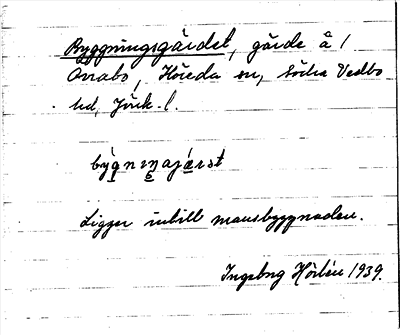 Byggningsgärdet, gärde å 1
Onabo, Höreda sn, Södra Vedbo
hd, Jönk. l.
Ligger intill mansbyggnaden.
Ingeborg Hörlén 1939.